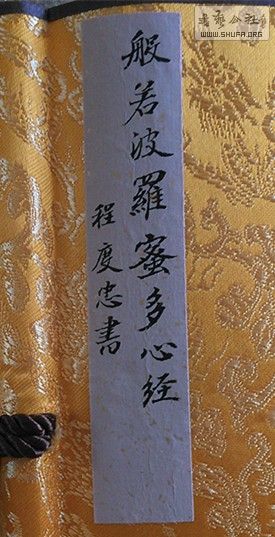 般若波羅蜜多心经
程度忠書
書藝公社
WWW.SHUFA.ORG